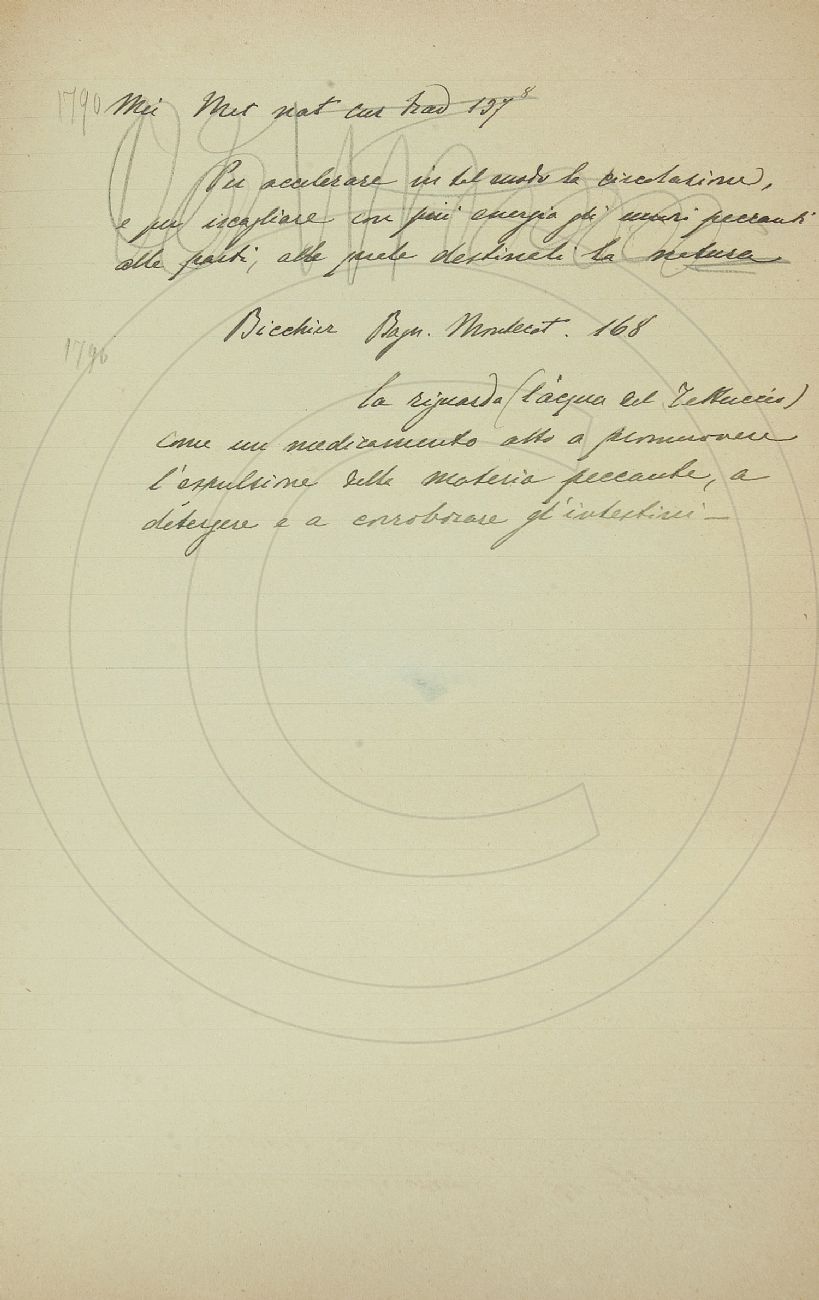 1790 Mei Met nat cur trad 197 8
Per accelerare in tal modo la circolazione,
e per iscagliare con più energia gli umori peccanti
alle parti, alle quale destinati la natura
1796
Bicchier Bagn. Montecat. 168
la riguarda (l'acqua del Tettuccio)
come un medicamento atto a promuovere
l'espulsione della materia peccante, a
detergere e a corroborare gl'intestini —